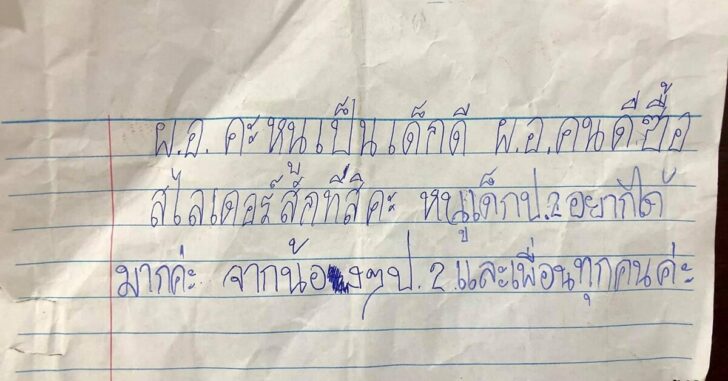 ผ.อ. คะหนูเป็นเด็กดี ผ.อ.คนดีซื้อ
สไลเดอร์สั้กที่สิคะ หนูเด็กป.2อยากได้
มากค่ะ จากน้องๆป.2และเพื่อนทุกคนค่ะ